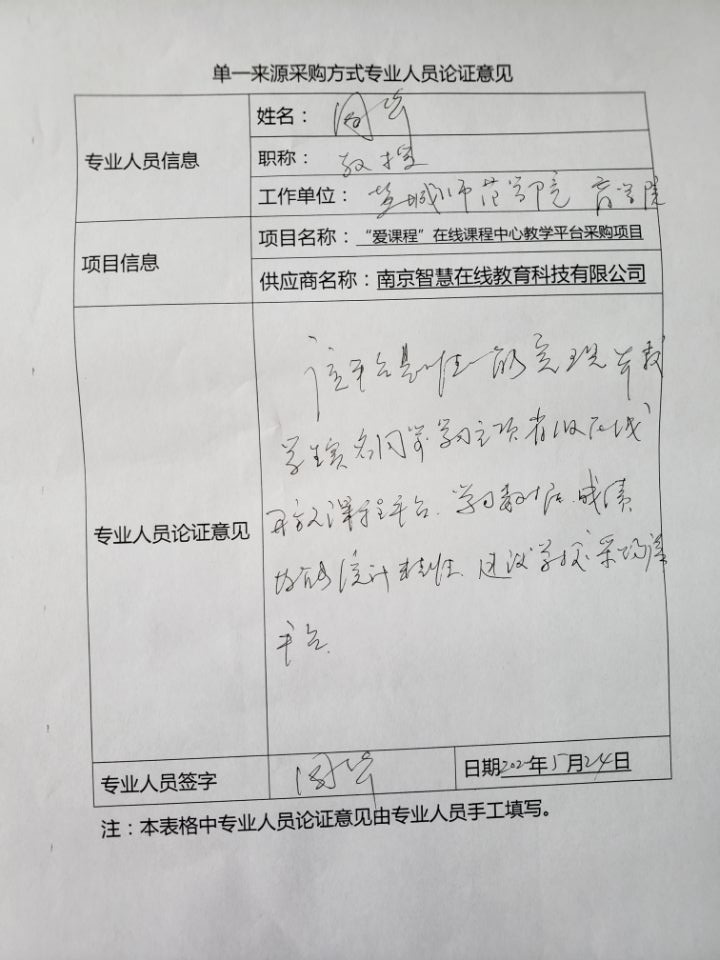 单一来源采购方式专业人员论证意见
专业人员信息
姓名:
职称: 教授
工作单位: 盐城师范学院 商学院
项目信息
项目名称:“爱课程”在线课程中心教学平台采购项目
供应商名称:南京智慧在线教育科技有限公司
专业人员论证意见
该平台是唯一能实现本校
学生实名同步学习主项省级在线
开放课程平台. 学习数据、成绩
均能统计. 建议学校采购该
平台.
专业人员签字
日期 年5月24日
注:本表格中专业人员论证意见由专业人员手工填写。